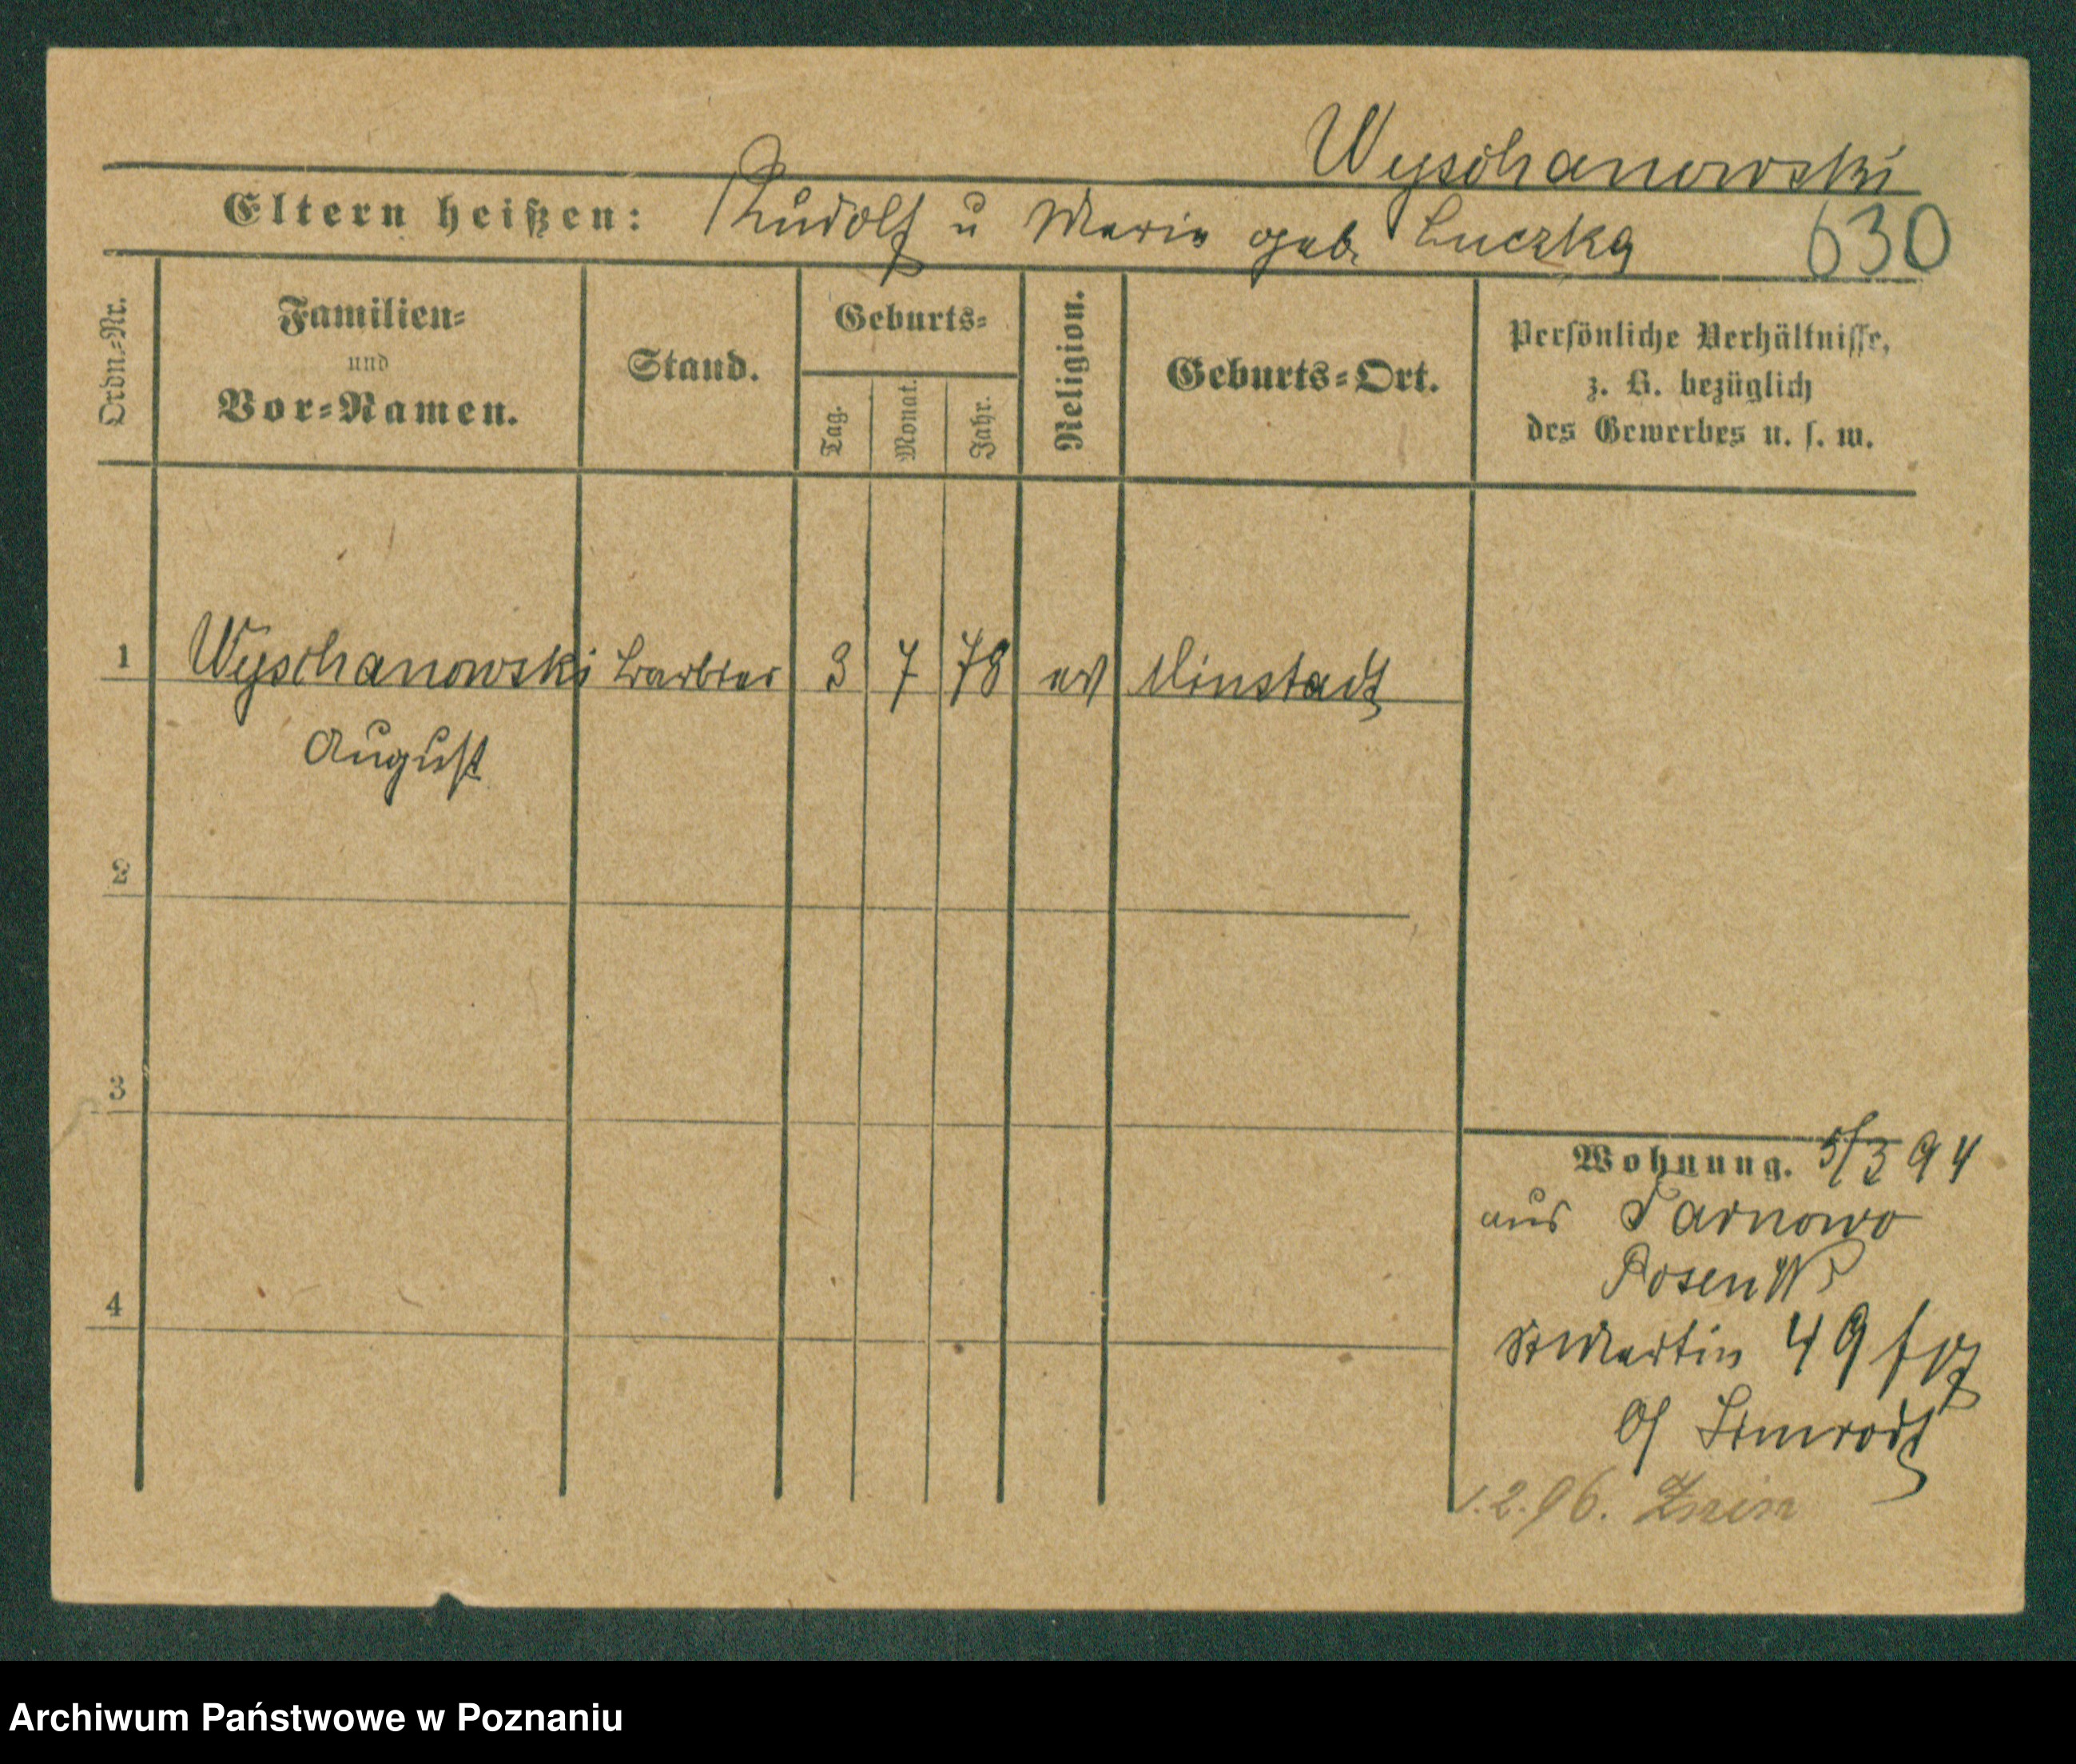 Wyschanowski
Eltern heißen: Rudolf u Marie geb. Luczka 630
Ordn.-Nr.
Familien- und Vor-Namen.
Stand.
Geburts-
Tag. Monat. Jahr.
Religion.
Geburts-Ort.
Persönliche Verhältnisse,
z. B. bezüglich
des Gewerbes u. s. w.
1 Wyschanowski Barbier 3 7 78 ev
August
2
3
4
Wohnung. 5/3 94
aus Tarnowo
Posen W
St Martin 49
1.2.96. Znin
Archiwum Państwowe w Poznaniu